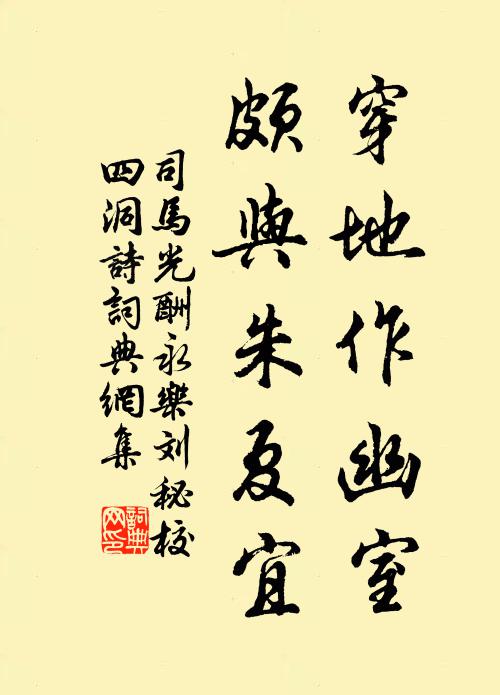 穿地作幽室
頗與朱夏宜
司馬光酬永樂刘秘校
四洞詩詞典網集
詞典
网印